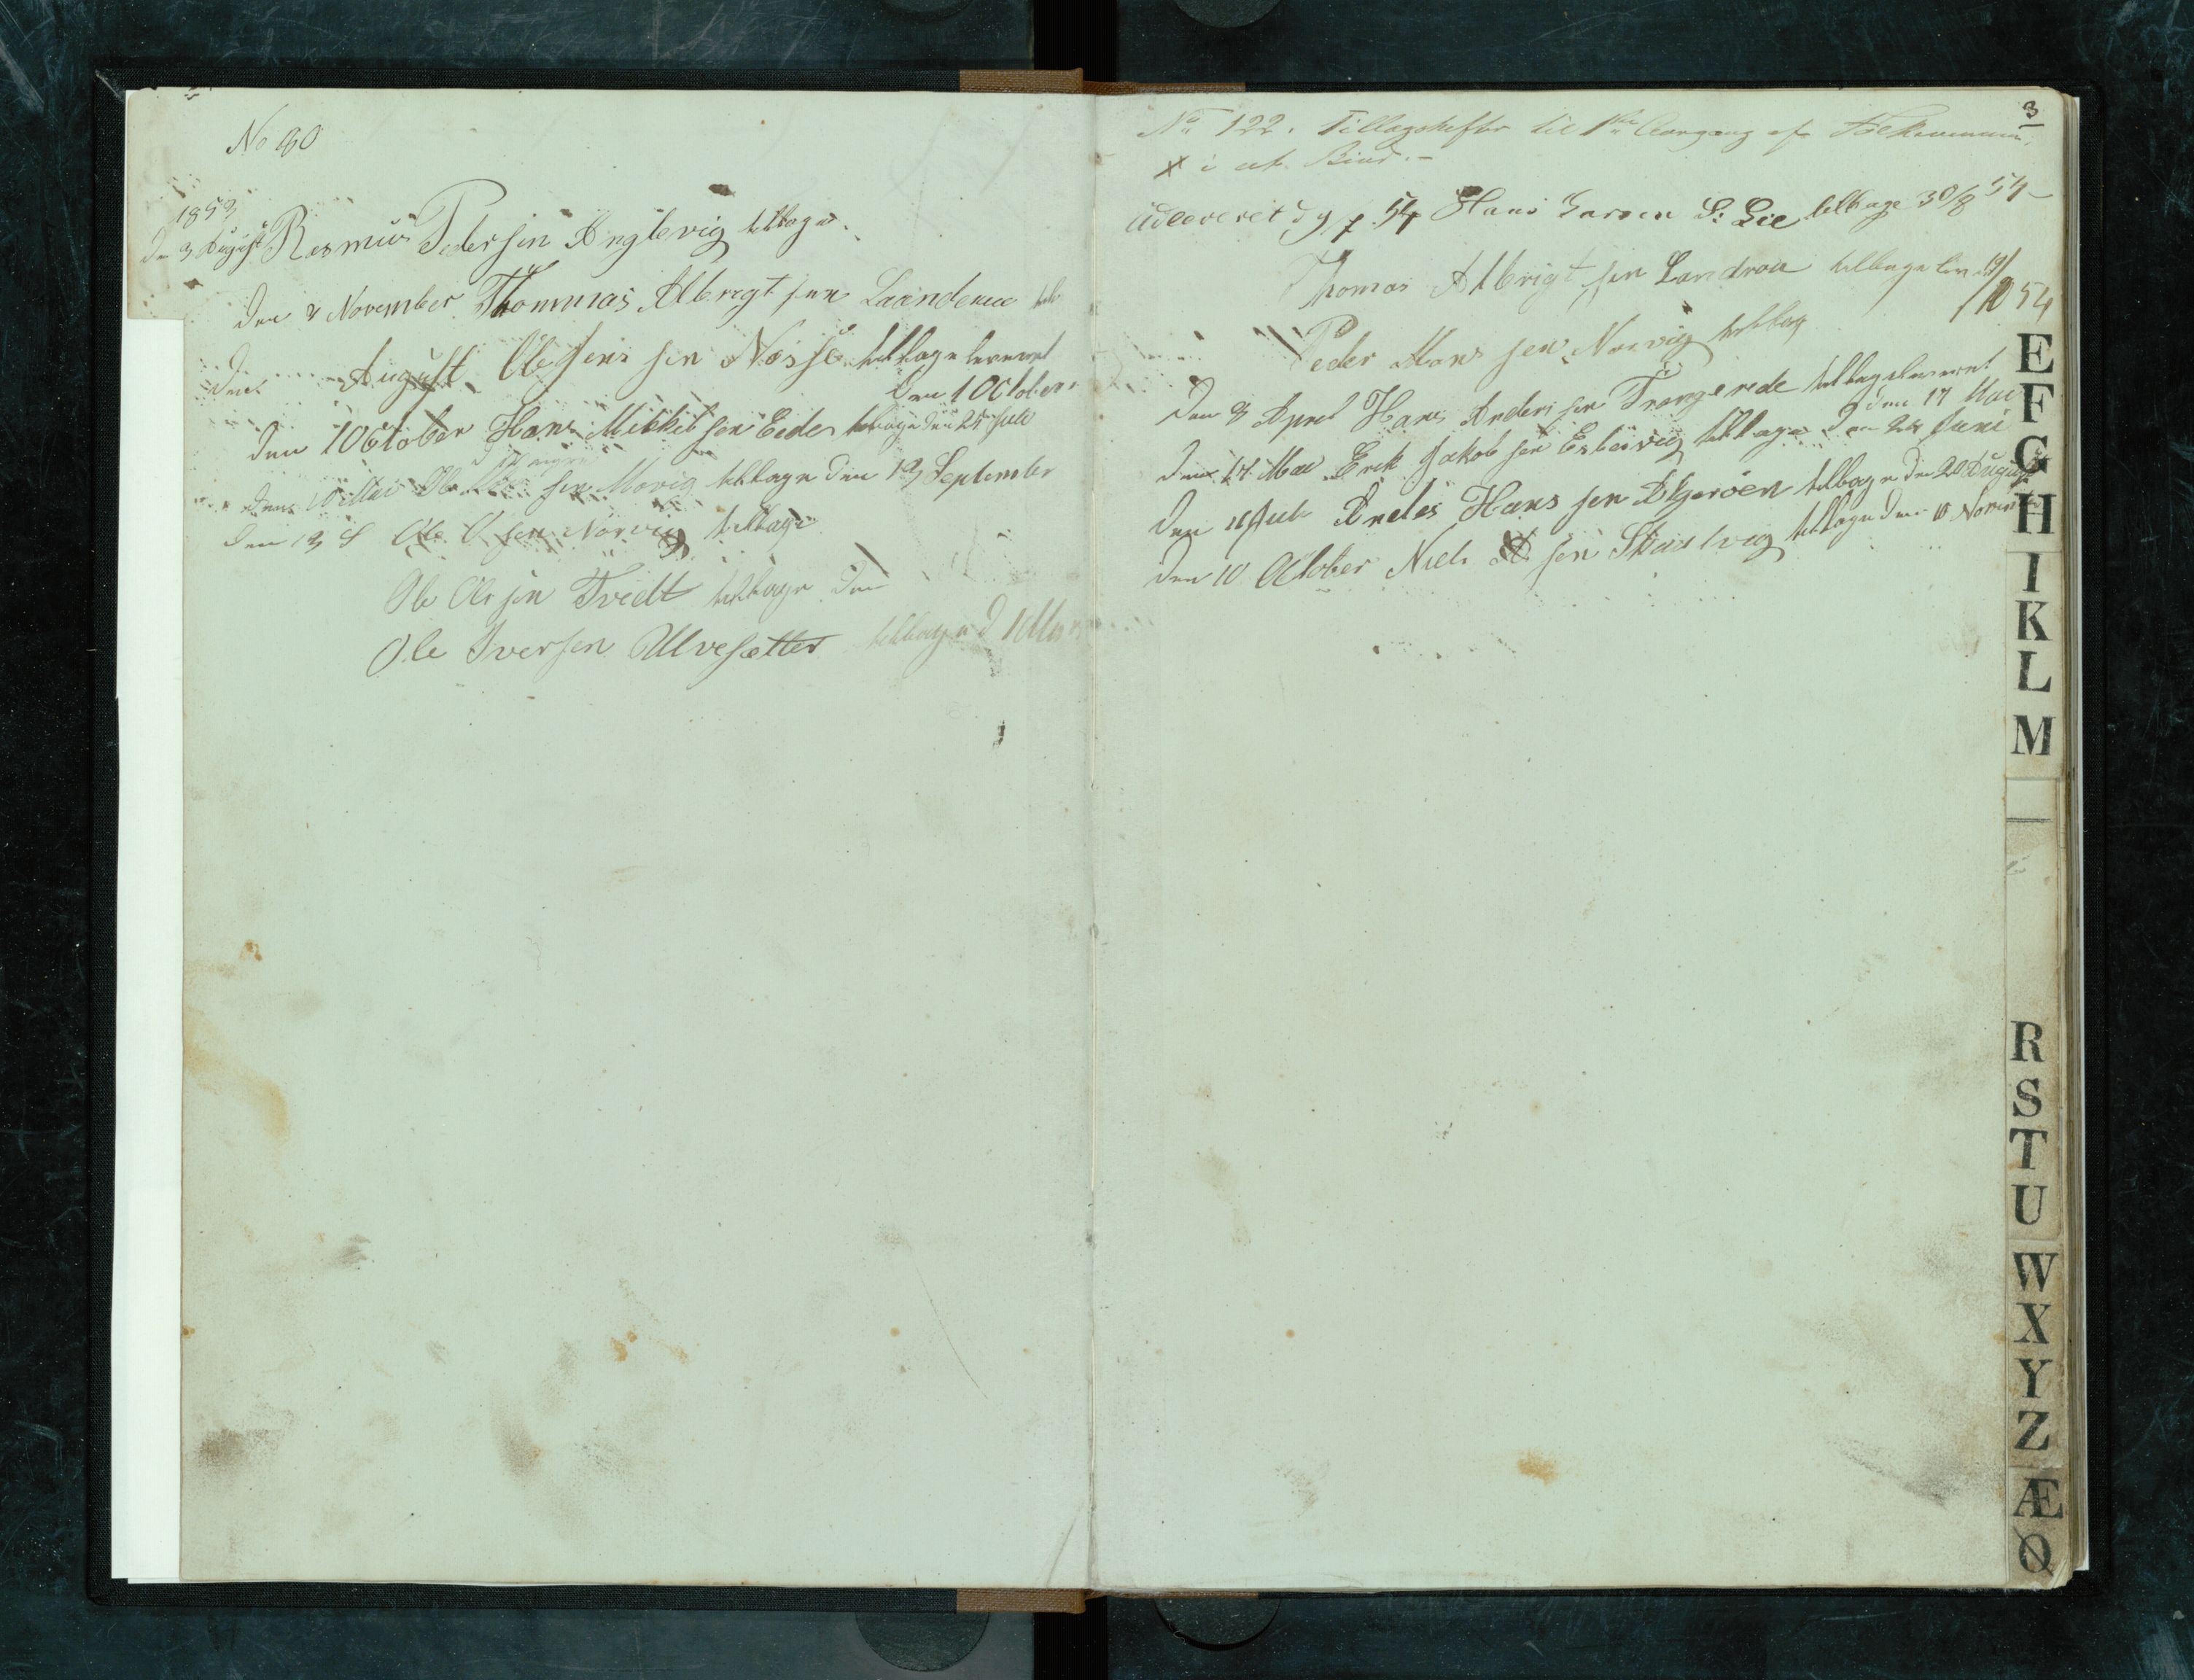 No 60
1853
Den 3 August Rasmus Pedersen Anglevig tilbage
Den 2 November Thommas Albregt sen Laandrøue
Den August Ole Jens sen Nøssø tilbageleveret
Den 1 October
Den 1 October Hans Mikkel sen Eide tilbage den 25 Juli
Den 10 Mai Ole sen Movig tilbage den 13 September
Den 13 S Ole O sen Norvig tilbage
Ole Ols sen Tvedt tilbage den
Ole Iversen Ulvesætter tilbage d 1 Mars
3
No 122. Tillægshefter til 1ste Aargang af Folkevennen
X i et Bind.-
Udleveret d 9/7 54 Hans Larsen S: Lie tilbage 30/8 54-
Thomas Albrigt sen Landrou tilbagelev 19/10 54
Peder Mons sen Norvig tilbag
Den 3 April Hans Anders sen Trangerede tilbageleveret
Den 17 Mai
Den 17 Mai Erik Jakob sen Esbevig tilbage Den 24 Juni
Den 11 Juli Andes Hans sen Algerøen tilbage den 20 August
Den 10 October Niels sen Skaalvig tilbage den 10 November
E
F
G
H
I
K
L
M
R
S
T
U
W
X
Y
Z
Æ
Ø